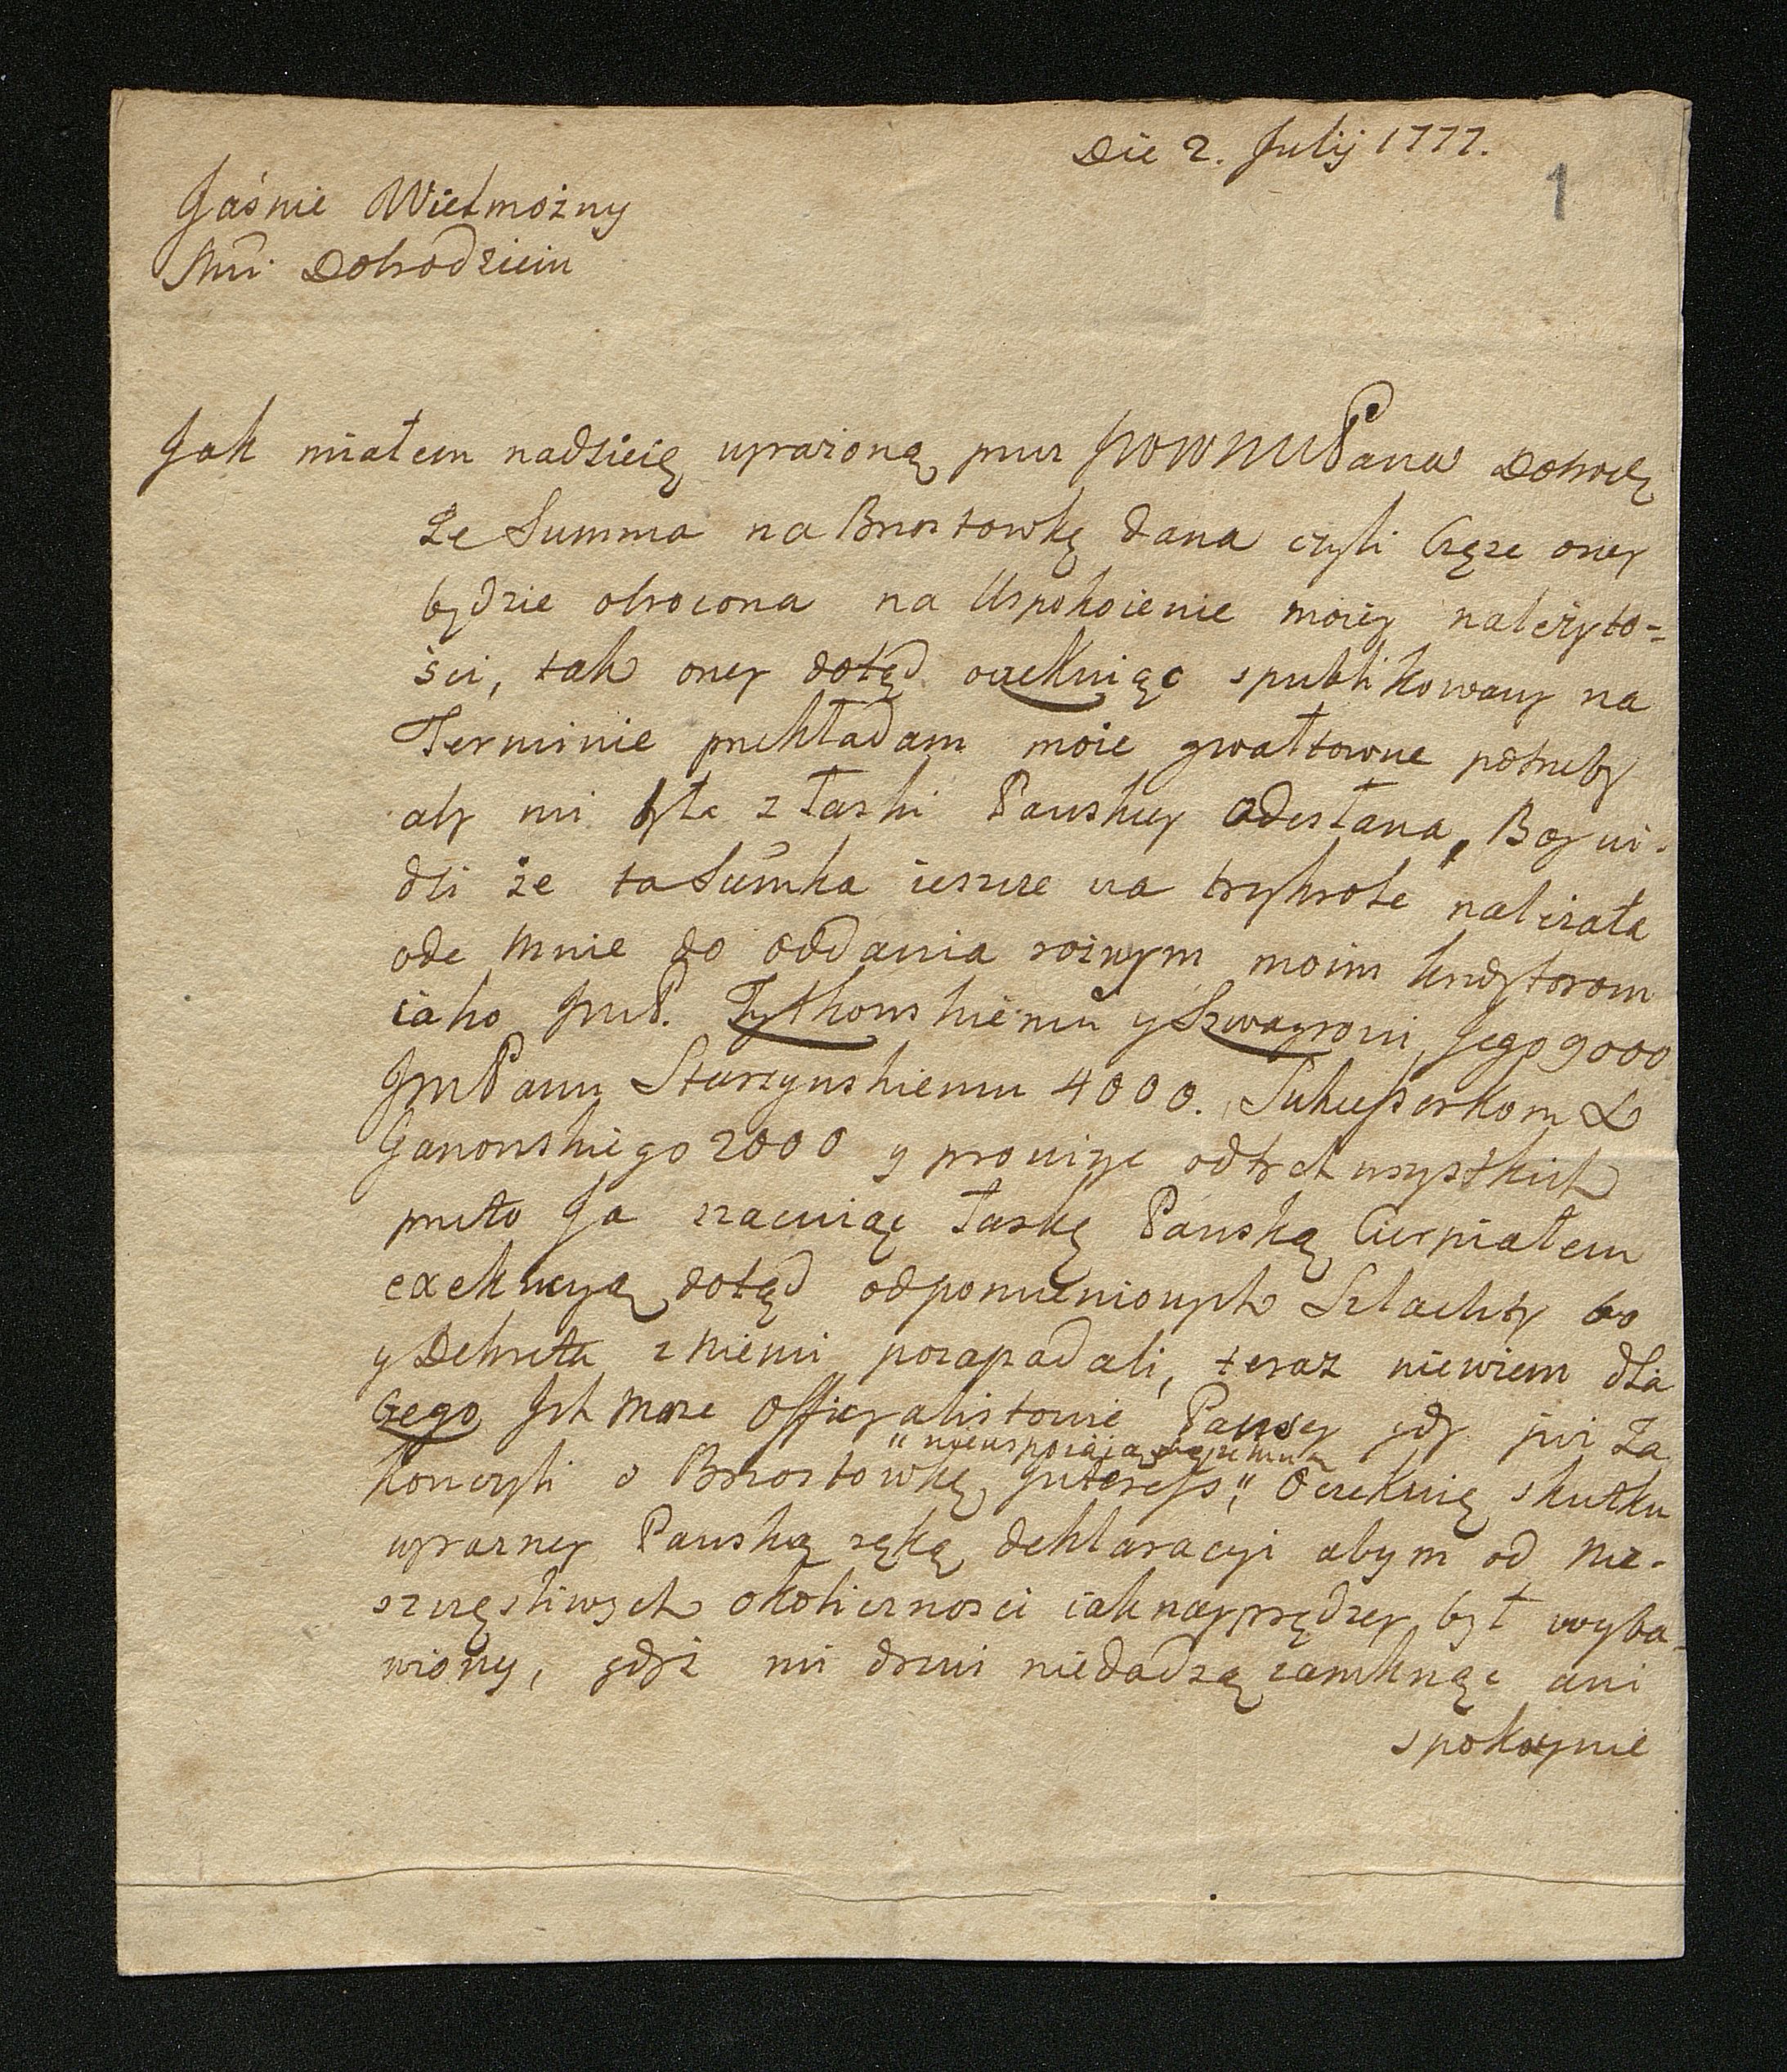 Die 2. Julij 1777.
1
Jaśnie Wielmożny
Mci Dobrodzieiu
Jak miałem nadzieię uprażoną przez JWWMPana Dobrodz
że Summa na Brzostowkę dana czyli Część oney
będzie obrocona na Uspokoienie moiey należyto=
ści, tak oney dotąd oczekuiąc spublikowany na
Terminie przekładam moie gwałtowne potrzeby
aby mi była z łaski Panskiey odesłana, Bog wi-
dzi że ta Sumka ieszcze na trzykroć należała
ode mnie do oddania rożnym moim kredytorom
iako JmP. Tythonskiemu y Szwagrowi Jego 9000
JmPanu Starzynskiemu 4000. Sukcessorkom
Janonskiego 2000 y prowizye od tych wszystkich
przeto Ja szacuiąc łaskę Panską Cierpiałem
exekucyą dotąd odpomienionych Szlachty bo
y Dekreta z niemi pozapadali, teraz niewiem dla
Czego Ich Mone Officyalistowie Panscy gdy już za
"nieuspokaiaią
konczyli o Brzostowkę Interess," Oczekuię skutku
wyrazney Panską ręką deklaracyi abym od nie-
szczęśliwych okoliczności iaknayprędzey był wyba-
wiony, gdyż mi drzwi niedadzą zamknąć ani
spokoynie